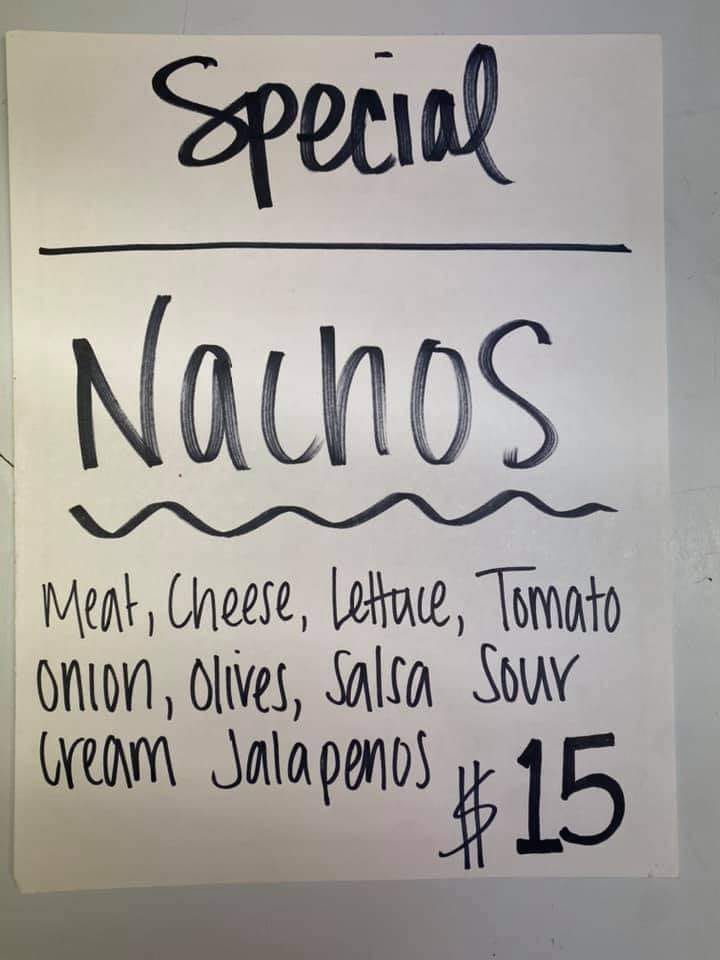 Special
Nachos
Meat, Cheese, Lettuce, Tomato
onion, olives, Salsa Sour
Cream Jalapenos
$15